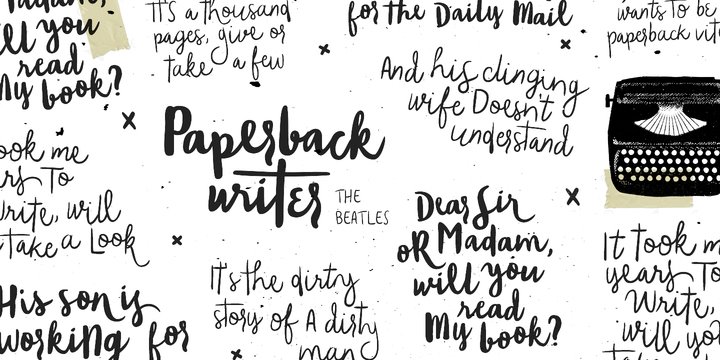 Madam,
will you
read
My book?
It's a thousand
pages, give or
take a few
for the Daily Mail
wants to be
paperback
And his clinging
wife Doesn't
understand
Paperback
writer
THE
BEATLES
took me
To
Write, will
take a Look
Dear Sir
oR Madam,
will you
read
My book?
It's the dirty
story of A dirty
man
His son is
working for
It took
years To
Write,
will you